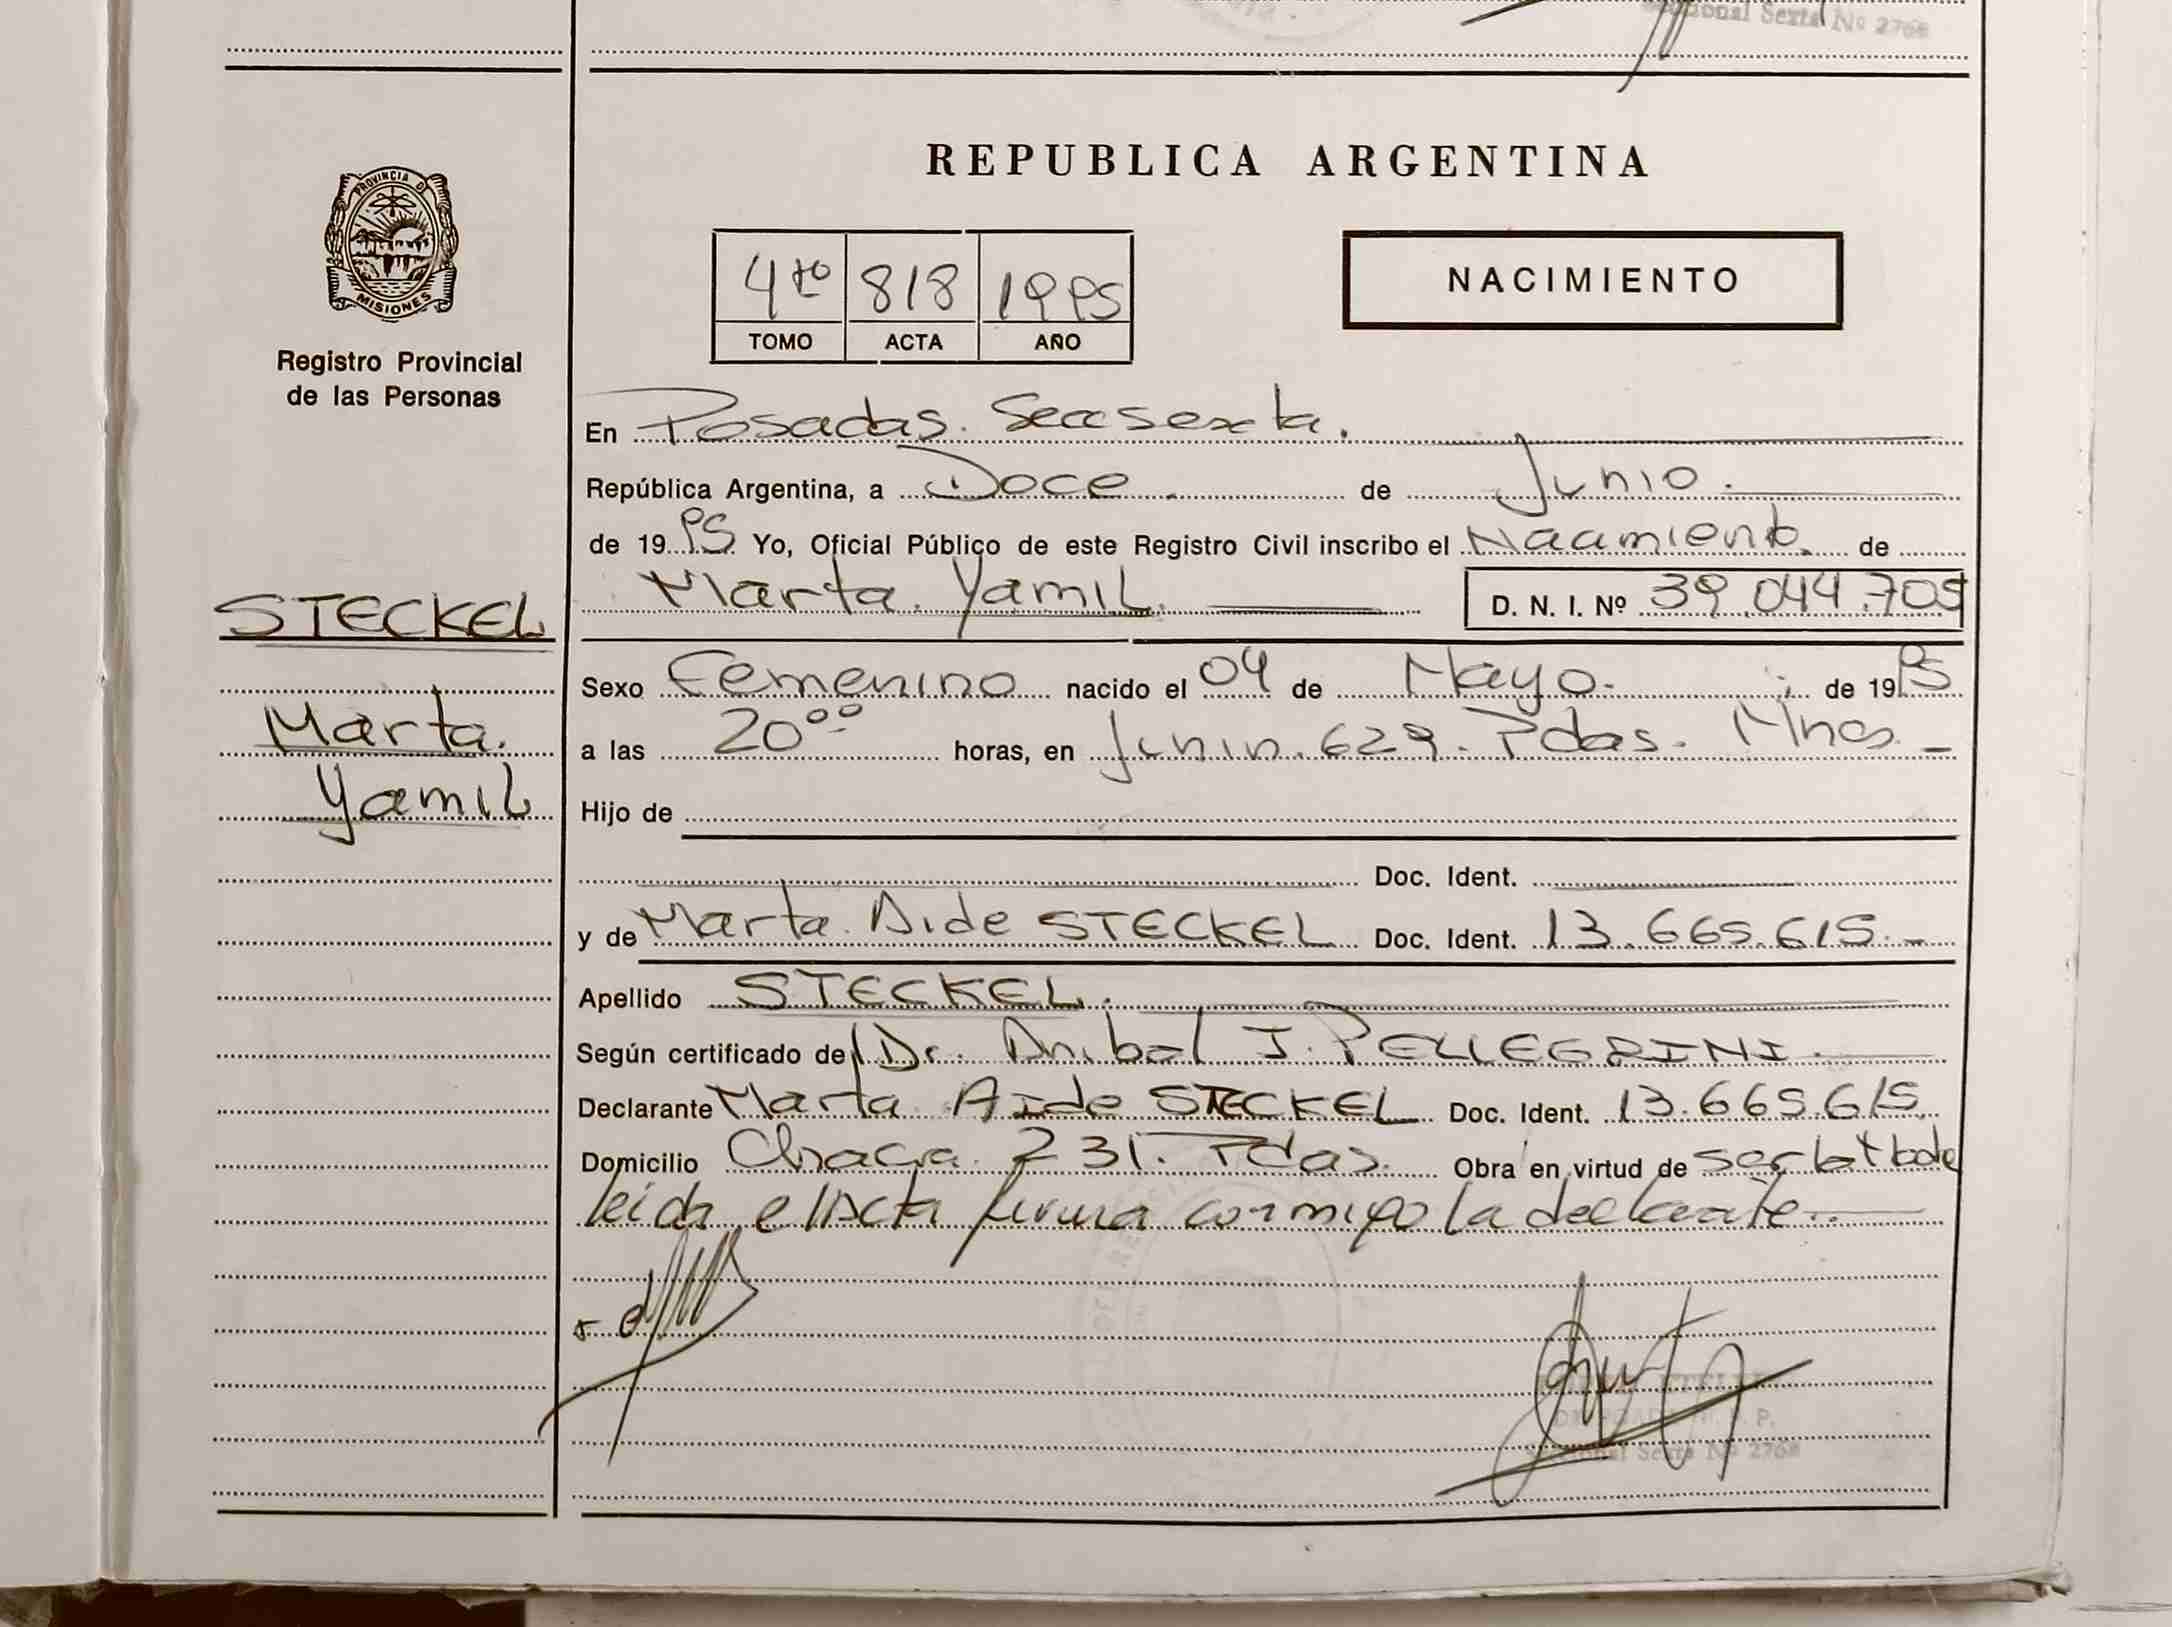 Sexta Nº 2768
REPUBLICA ARGENTINA
PROVINCIA DE
MISIONES
Registro Provincial
de las Personas
4to 818 1995
TOMO ACTA AÑO
NACIMIENTO
En Posadas. Secc sexta.
República Argentina, a Doce de Junio.
de 1995 Yo, Oficial Público de este Registro Civil inscribo el Nacimiento. de
Marta. Yamil. D. N. I. Nº 39.044.705
STECKEL
Marta.
Yamil
Sexo Femenino nacido el 04 de Mayo. de 1995
a las 20⁰⁰ horas, en Junin. 629. Pdas. Mnes.
Hijo de
Doc. Ident.
y de Marta. Aide STECKEL Doc. Ident. 13.665.615.-
Apellido STECKEL.
Según certificado del Dr. Anibal J. PELLEGRINI.
Declarante Marta Aide STECKEL Doc. Ident. 13.665.615
Domicilio Chacra. 231. Pdas. Obra en virtud de
leida el Acta firma conmigo la declarante.
Seccional Sexta Nº 2768